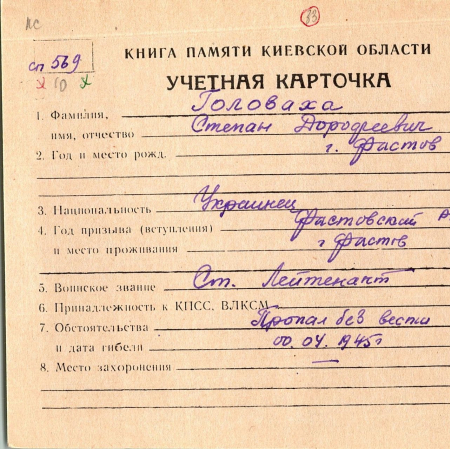 КС
33
сп 569
х 10 х
КНИГА ПАМЯТИ КИЕВСКОЙ ОБЛАСТИ
УЧЕТНАЯ КАРТОЧКА
1. Фамилия, Головаха
имя, отчество Степан Дорофеевич
2. Год и место рожд. г. Фастов
3. Национальность Украинец
4. Год призыва (вступления) Фастовский
и место проживания г Фастов
5. Воинское звание Ст. Лейтенант
6. Принадлежность к КПСС. ВЛКСМ
7. Обстоятельства Пропал без вести
и дата гибели 00.04.1945г
8. Место захоронения —